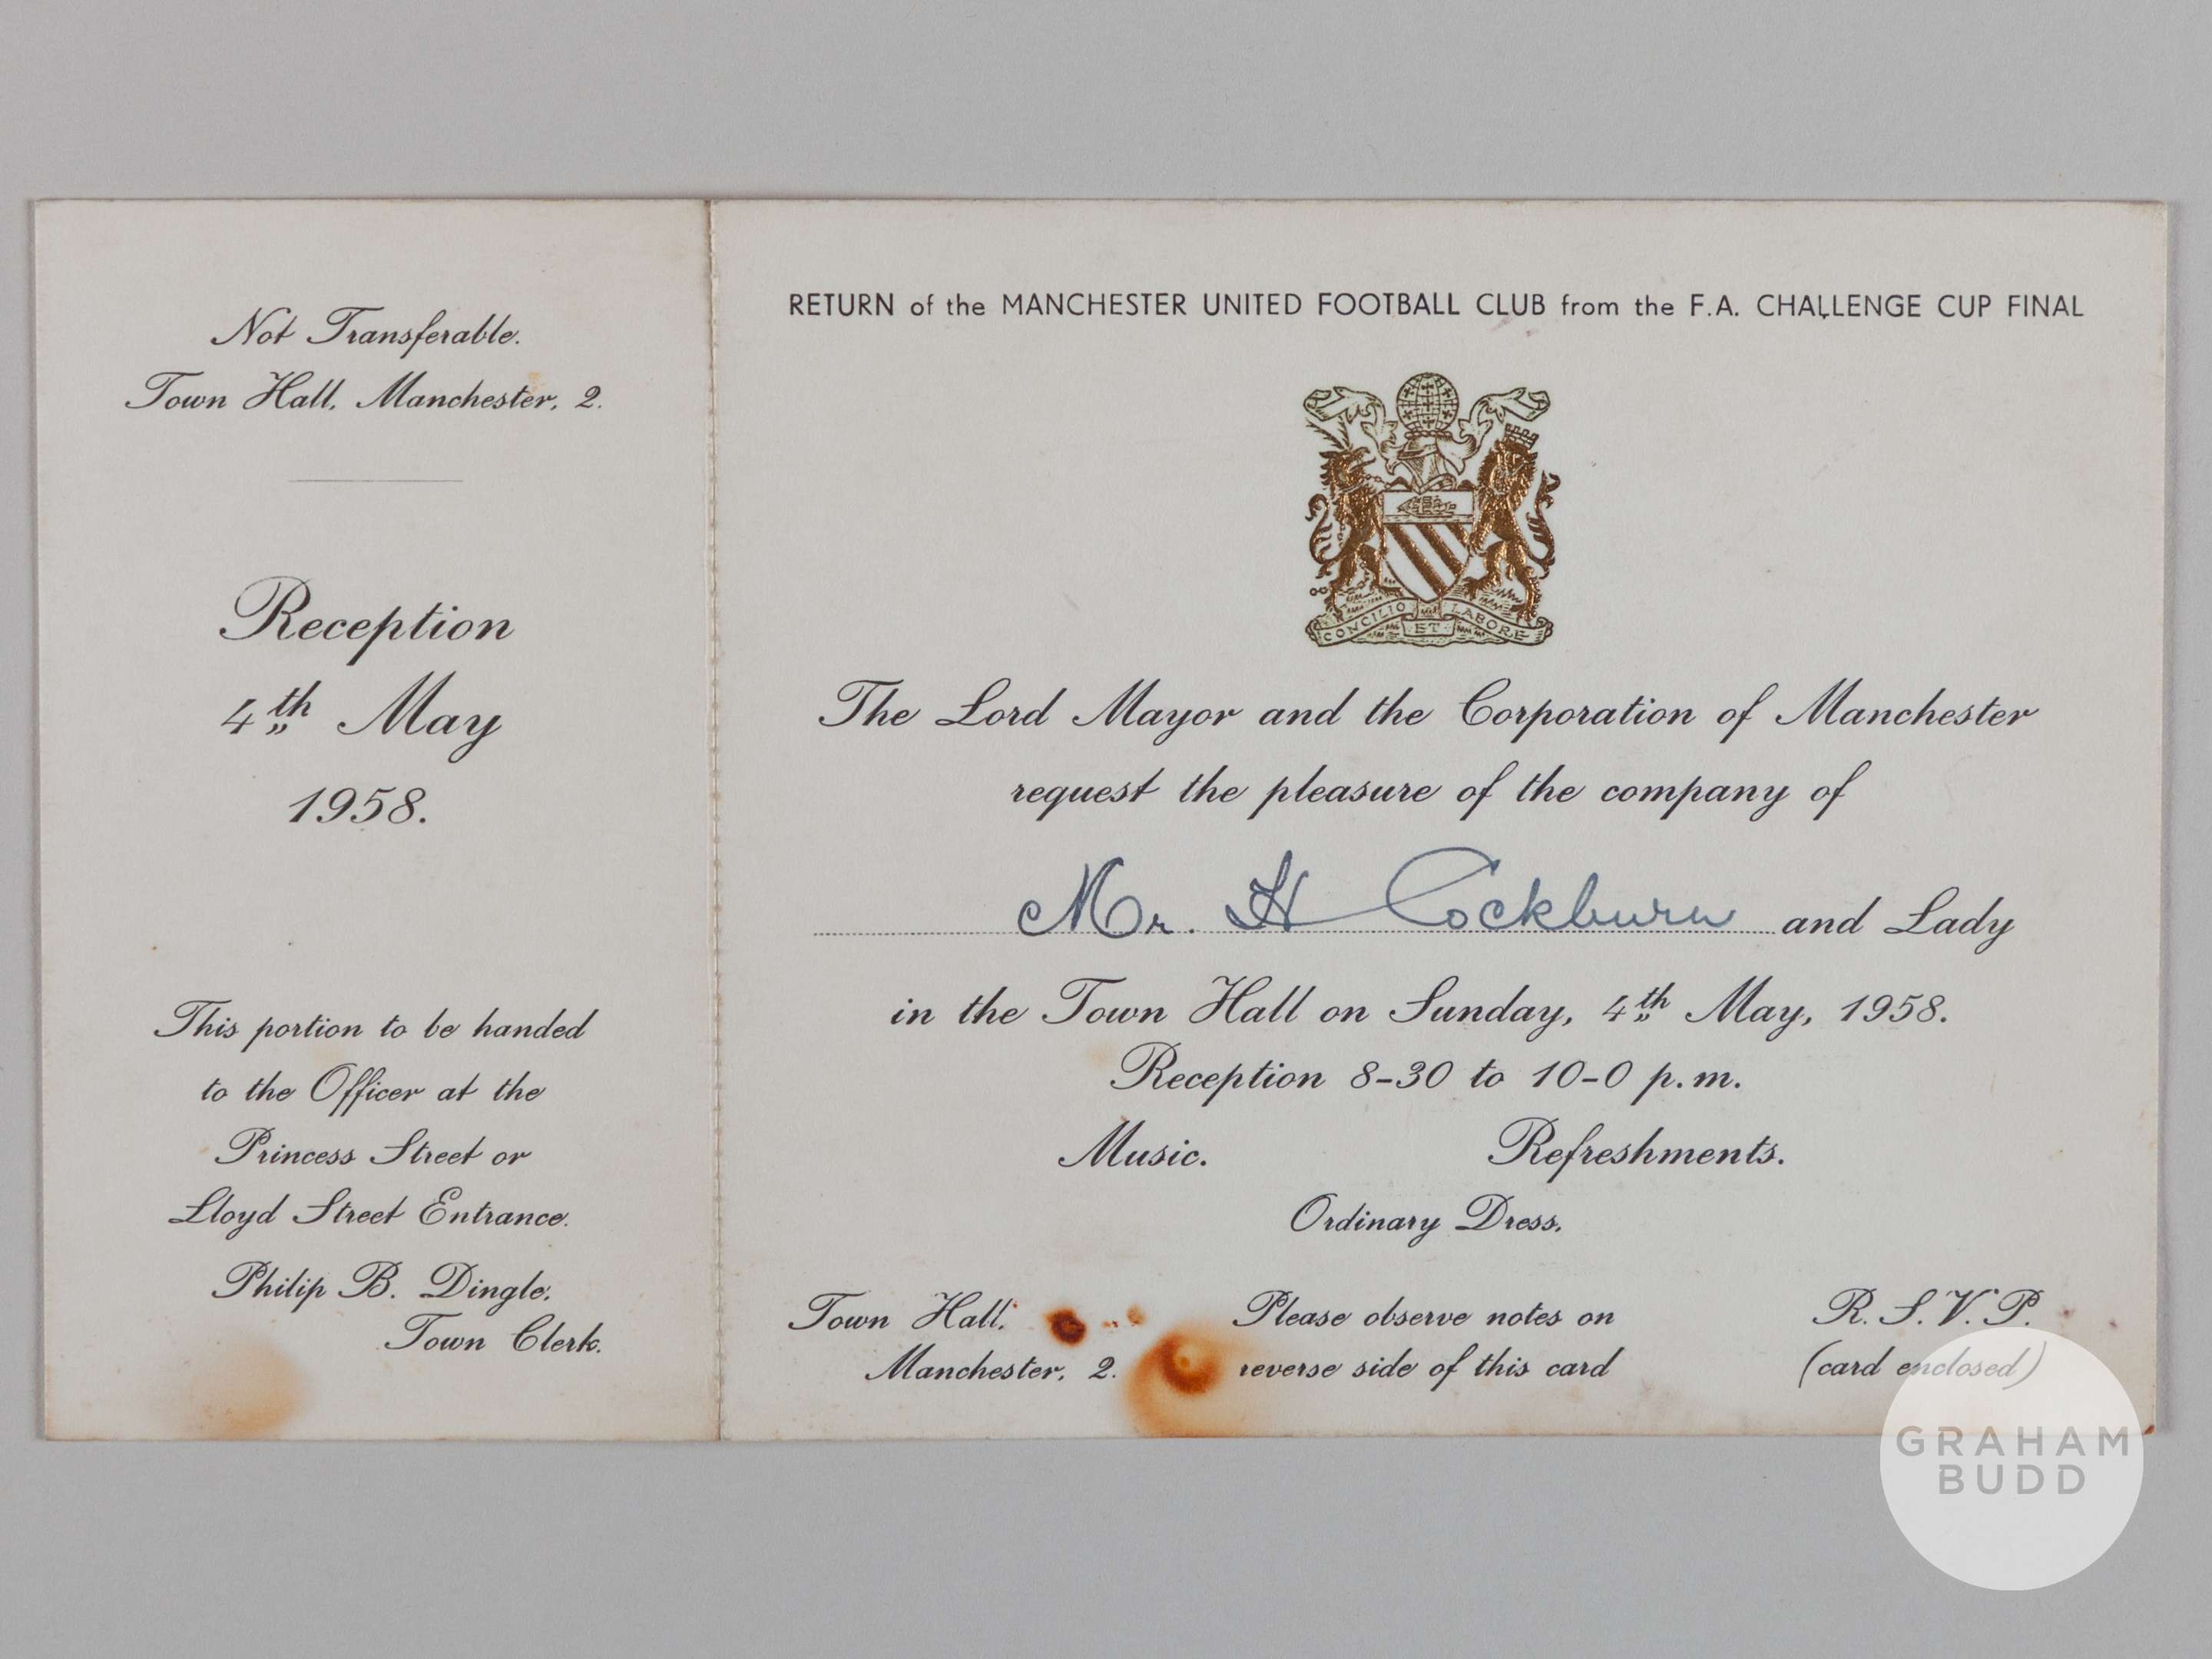 Not Transferable.
Town Hall, Manchester, 2.
Reception
4th May
1958.
This portion to be handed
to the Officer at the
Princess Street or
Lloyd Street Entrance.
Philip B. Dingle,
Town Clerk.
RETURN of the MANCHESTER UNITED FOOTBALL CLUB from the F.A. CHALLENGE CUP FINAL
CONCILIO ET LABORE
The Lord Mayor and the Corporation of Manchester
request the pleasure of the company of
Mr. H Cockburn and Lady
in the Town Hall on Sunday, 4th May, 1958.
Reception 8-30 to 10-0 p.m.
Music. Refreshments.
Ordinary Dress.
Town Hall, Please observe notes on R.S.V.P.
Manchester, 2. reverse side of this card (card enclosed)
GRAHAM
BUDD